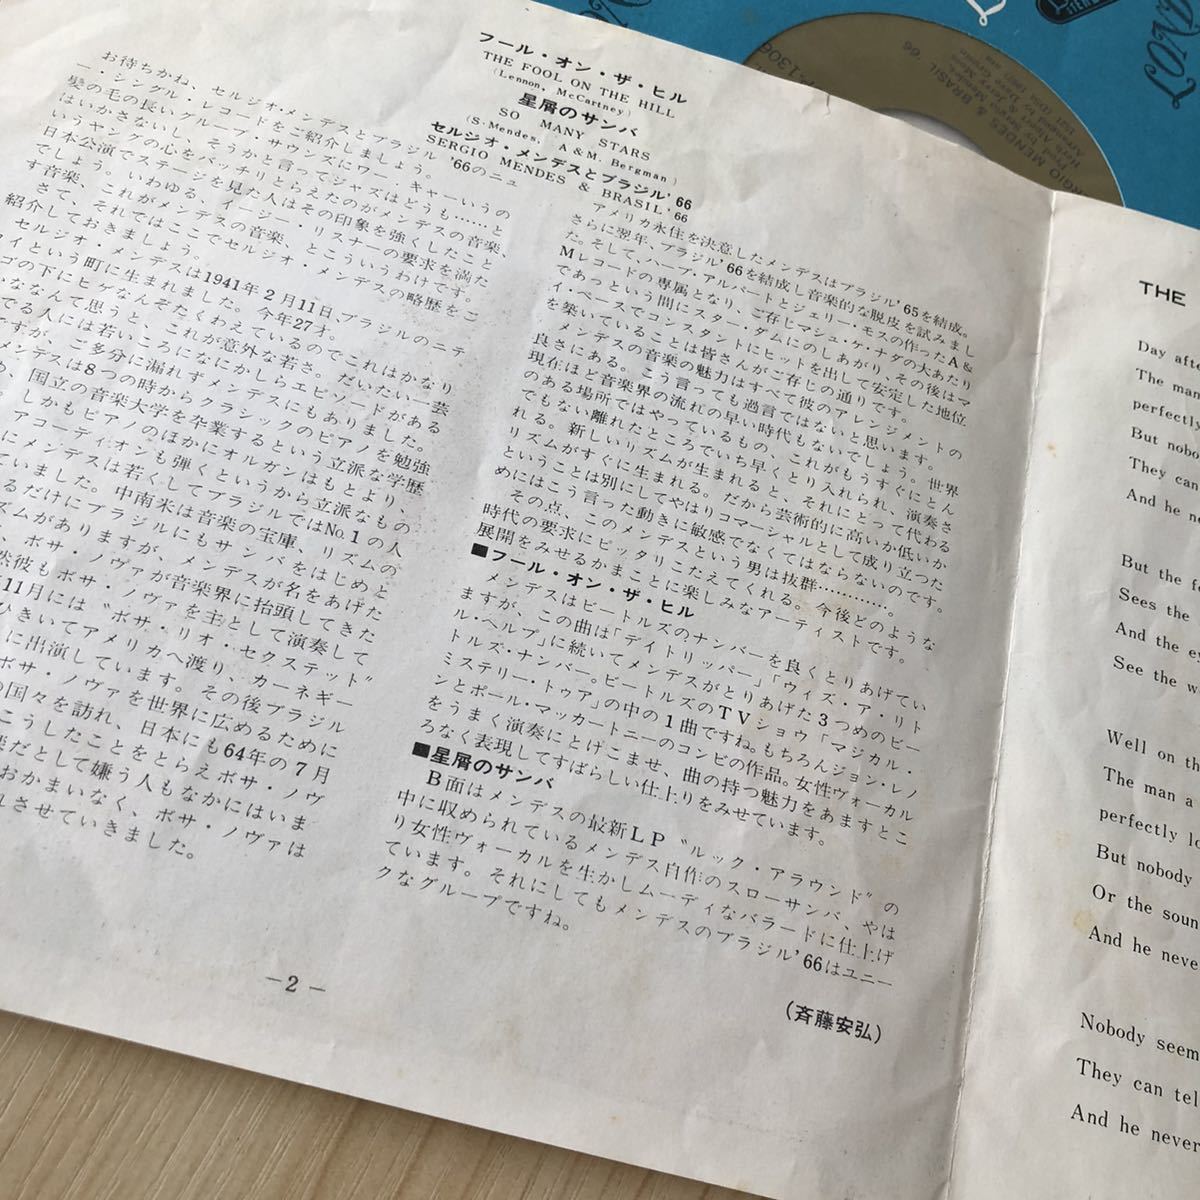 フール・オン・ザ・ヒル
THE FOOL ON THE HILL
(Lennon, McCartney)
星屑のサンバ
SO MANY STARS
(S. Mendes, A & M. Bergman)
セルジオ・メンデスとブラジル'66
SERGIO MENDES & BRASIL '66
お待ちかね、セルジオ・メンデスとブラジル'66のニュ
ー・シングル・レコードをご紹介しましょう。
髪の毛の長いグループ・サウンズにワー・キャーいうの
はいかさないし、そうかと言ってジャズはどうも……と
いうヤングの心をバッチリとらえたのがメンデスの音楽、
日本公演でステージを見た人はその印象を強くしたこと
でしょう。いわゆる、イージー・リスナーの要求を満た
す音楽、これがメンデスの音楽、とこういうわけです。
さて、それではここでセルジオ・メンデスの略歴をご
紹介しておきましょう。
セルジオ・メンデスは1941年2月11日、ブラジルのニテ
イという町に生まれました。今年27才。
ゴの下にヒゲなんぞたくわえているのでこれはかなり
なんて思うと、これが意外な若さ。だいたい一芸
でる人には若いころになにかしらエピソードがある
すが、ご多分に漏れずメンデスにもありました。
メンデスは8つの時からクラシックのピアノを勉強
め、国立の音楽大学を卒業するという立派な学歴
しかもピアノのほかにオルガンはもとより、
アコーディオンも弾くというから立派なもの
にメンデスは若くしてブラジルではNo.1の人
ていました。中南米は音楽の宝庫、リズムの
るだけにブラジルにもサンバをはじめと
ズムがありますが、メンデスが名をあげた
、ボサ・ノヴァが音楽界に抬頭してきた
然彼もボサ・ノヴァを主として演奏して
年11月には“ボサ・リオ・セクステット”
ひきいてアメリカへ渡り、カーネギー
に出演しています。その後ブラジル
ボサ・ノヴァを世界に広めるために
の国々を訪れ、日本にも64年の7月
こうしたことをとらえボサ・ノヴ
だとして嫌う人もなかにはいま
おかまいなく、ボサ・ノヴァは
させていきました。
アメリカ永住を決意したメンデスはブラジル'65を結成。
さらに翌年、ブラジル'66を結成し音楽的な脱皮を試みまし
た。そして、ハーブ・アルパートとジェリー・モスの作ったA&
Mレコードの専属となり、ご存じマシュ・ケ・ナダの大あたり
であっという間にスター・ダムにのしあがり、その後はマ
イ・ペースでコンスタントにヒットを出して安定した地位
を築いていることは皆さんがご存じの通りです。
メンデスの音楽の魅力はすべて彼のアレンジメントの
良さにある。こう言っても過言ではないと思います。
現在ほど音楽界の流れの早い時代もないでしょう。世界
のある場所ではやっているもの、これがもうすぐにとん
でもない離れたところでいち早くとり入れられ、演奏さ
れる。新しいリズムが生まれると、それにとって代わる
リズムがすぐに生まれる。だから芸術的に高いか低いか
ということは別にしてやはりコマーシャルとして成り立つた
めにはこう言った動きに敏感でなくてはならないのです。
その点、このメンデスという男は抜群…………。
時代の要求にピッタリこたえてくれる。今後どのような
展開をみせるかまことに楽しみなアーティストです。
■フール・オン・ザ・ヒル
メンデスはビートルズのナンバーを良くとりあげてい
ますが、この曲は「デイトリッパー」「ウィズ・ア・リト
ル・ヘルプ」に続いてメンデスがとりあげた3つめのビー
トルズ・ナンバー。ビートルズのTVショウ「マジカル・
ミステリー・トゥア」の中の1曲ですね。もちろんジョン・レノ
ンとポール・マッカートニーのコンビの作品。女性ヴォーカル
をうまく演奏にとけこませ、曲の持つ魅力をあますとこ
ろなく表現してすばらしい仕上りをみせています。
■星屑のサンバ
B面はメンデスの最新LP“ルック・アラウンド”の
中に収められているメンデス自作のスローサンバ、やは
り女性ヴォーカルを生かしムーディなバラードに仕上げ
ています。それにしてもメンデスのブラジル'66はユニー
クなグループですね。
(斉藤安弘)
－2－
THE
Day afte
The man
perfectly
But nobo
They can
And he ne
But the f
Sees the
And the ey
See the w
Well on th
The man a
perfectly lo
But nobody
Or the soun
And he never
Nobody seem
They can tel
And he never
MENDES & BRASIL '66